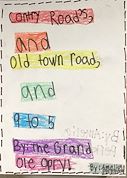 contry Roads,
and
Old town road,
and
9 to 5
By: the Grand
Ole Opry!